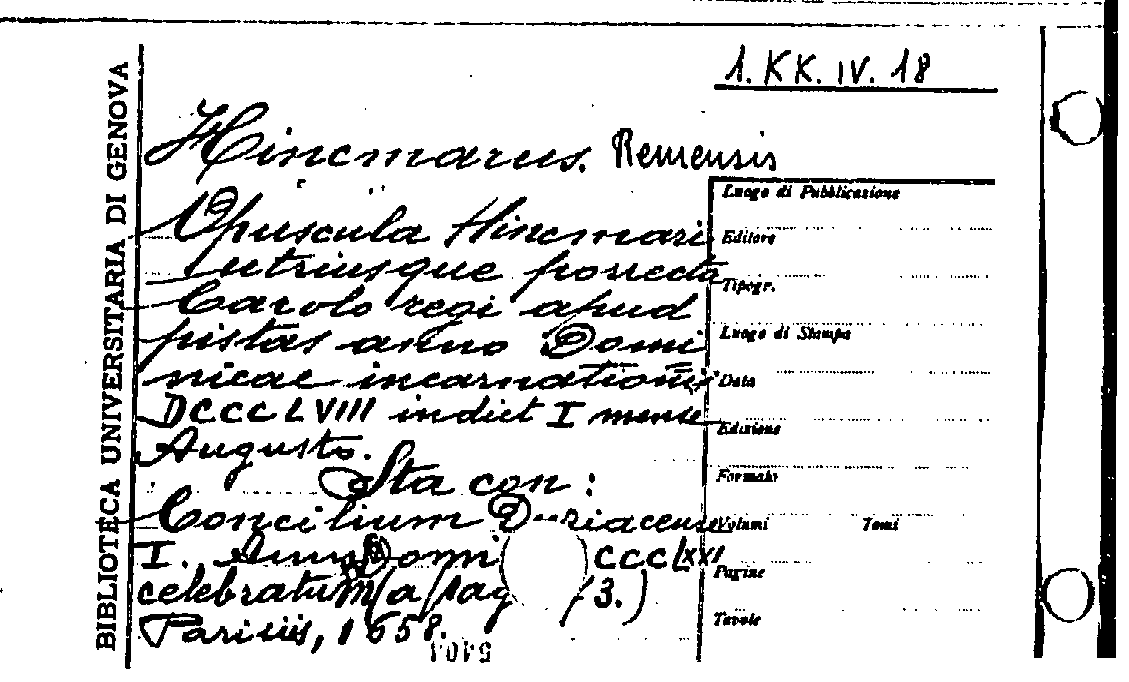 1. KK. IV. 18
BIBLIOTECA UNIVERSITARIA DI GENOVA
Hincmarus. Remensis
Opuscula Hincmari
utriusque porrecta
Carolo regi apud
pistas anno Domi
nicae incarnationis
DCCCLVIII indict I mense
Augusto.
Sta con:
Concilium
I. Domi CCCLXXI
celebratum (a pag 3.)
Parisiis, 1658.
Luogo di Pubblicazione
Editore
Tipogr.
Luogo di Stampa
Data
Edizione
Formato
Volumi Tomi
Pagine
Tavole